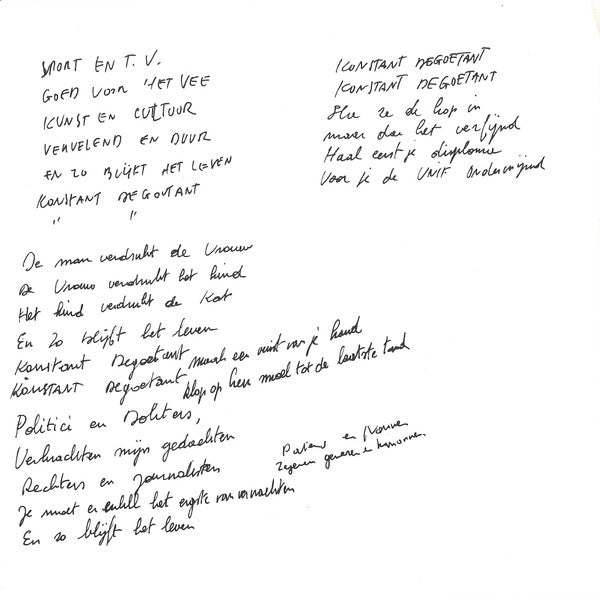 SPORT EN T.V.
GOED VOOR HET VEE
KUNST EN CULTUUR
VERVELEND EN DUUR
EN ZO BLIJKT HET LEVEN
KONSTANT DEGOUTANT
" "
KONSTANT DEGOETANT
KONSTANT DEGOETANT
Sla ze de kop in
maar doe het verfijnd
Haal eerst je diploma
Voor je de UNIF ondermijnd
De man verdrukt de Vrouw
De Vrouw verdrukt het kind
Het kind verdrukt de Kat
En zo blijft het leven
Konstant Degoetant
KONSTANT Degoetant
Maak een vuist van je hand
klop op hun muil tot de laatste tand
Politici en Dokters,
Verkrachten mijn gedachten
Rechters en Journalisten
Je moet er enkel het ergste van verwachten
En zo blijft het leven
Paters en Nonnen
Zegenen geweren en kanonnen